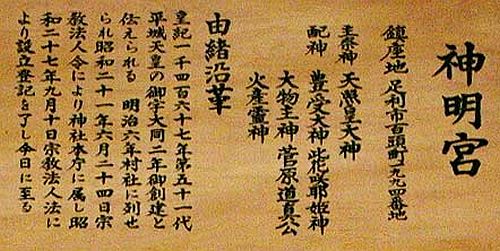 神明宮
鎮座地 足利市百頭町九九四番地
主祭神 天照皇大神
配神 豊受大神 此花咲耶姫神
大物主神 菅原道真公
火産霊神
由緒沿革
皇紀一千四百六十七年第五十一代
平城天皇の御宇大同二年御創建と
伝えられる 明治六年村社に列せ
られ昭和二十一年六月二十四日宗
教法人令により神社本庁に属し昭
和二十七年九月十日宗教法人法に
より設立登記を了し今日に至る